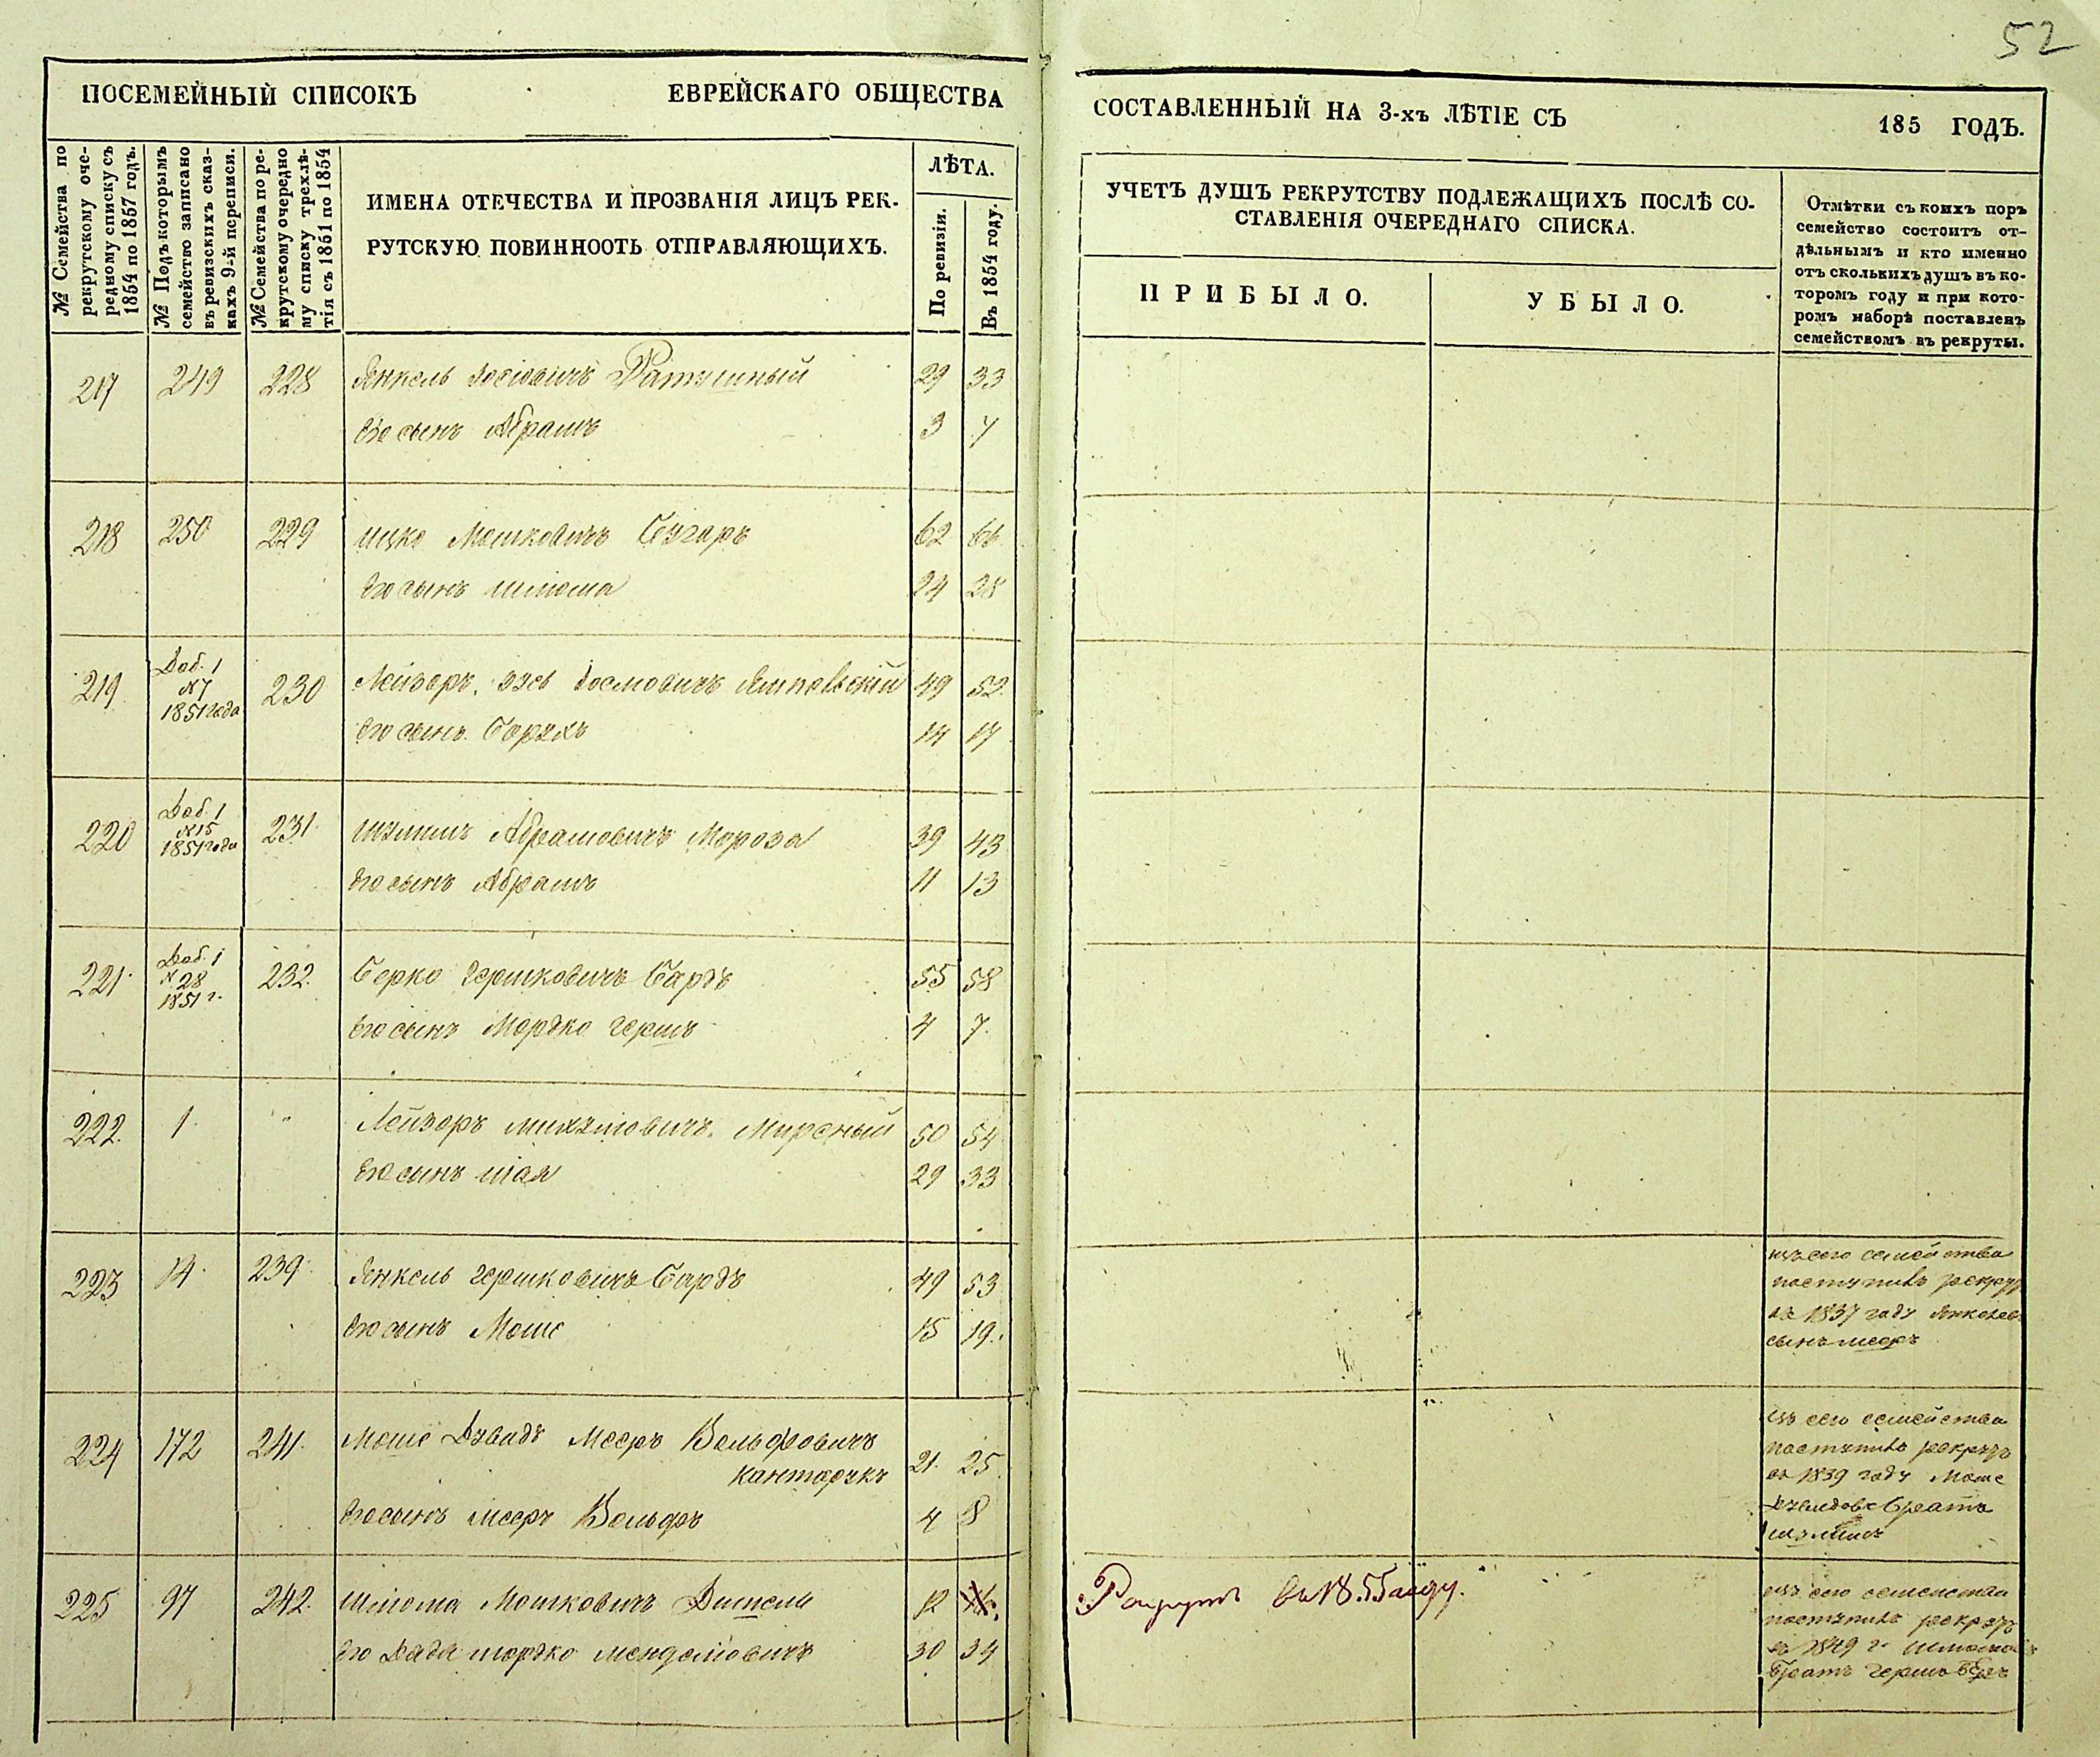 52
ПОСЕМЕЙНЫЙ СПИСОКЪ ЕВРЕЙСКАГО ОБЩЕСТВА
СОСТАВЛЕННЫЙ НА 3-хъ ЛѢТІЕ СЪ 185 ГОДЪ.
№ Семейства по
рекрутскому оче-
редному списку съ
1854 по 1857 годъ.
№ Подъ которымъ
семейство записано
въ ревизскихъ сказ-
кахъ 9-й переписи.
№ Семейства по ре-
крутскому очередно
му списку трехлѣ-
тія съ 1851 по 1854
ИМЕНА ОТЕЧЕСТВА И ПРОЗВАНІЯ ЛИЦЪ РЕК-
РУТСКУЮ ПОВИННООТЬ ОТПРАВЛЯЮЩИХЪ.
ЛѢТА.
По ревизіи.
Въ 1854 году.
УЧЕТЪ ДУШЪ РЕКРУТСТВУ ПОДЛЕЖАЩИХЪ ПОСЛѢ СО-
СТАВЛЕНІЯ ОЧЕРЕДНАГО СПИСКА.
ПРИБЫЛО.
УБЫЛО.
Отмѣтки съ коихъ поръ
семейство состоитъ от-
дѣльнымъ и кто именно
отъ сколькихъ душъ въ ко-
торомъ году и при кото-
ромъ наборѣ поставленъ
семействомъ въ рекруты.
217 249 228 Янкель Іосіовичъ Ратушный 29 33
Его сынъ Абрамъ 3 7
218 250 229 Ицко Мошковичъ Бугаръ 62 66
Его сынъ Шлёма 24 28
219 Доб. 1 230 Лейзоръ, Зусь Ямпольскій 49 52
№ 7
1851 года
Его сынъ Борухъ 14 17
220 Доб. 1 231 Шулимъ Абрамовичъ Мороза 39 43
№ 15
1851 года
Его сынъ Абрамъ 11 13
221 Доб. 1 232 Берко Гершковичъ Бардъ 55 58
№ 28
1851 г.
Его сынъ Мордко Гершъ 4 7
222 1 " Лейзоръ Михелювичъ Мирсный 50 54
Его сынъ Шая 29 33
223 14 239 Янкель Гершковичъ Бардъ 49 53
Его сынъ Моше 15 19
изъ сего семейства
поступилъ рекрут
въ 1837 году Янкелевъ
сынъ Мееръ
224 172 241 Моше Дувидъ Мееръ Вольфовичъ
Кантарукъ 21 25
Его сынъ Мееръ Вольфъ 4 8
изъ сего семейства
поступилъ рекрутъ
въ 1839 году Моше
Дувидовъ братъ
Шулимъ
225 97 242 Шлома Мошковичъ 12
Его дядя Мордко Менделіовичъ 30 34
Рекрутъ въ 1855 году.
изъ сего семейства
поступилъ рекрутъ
въ 1849 г.
братъ Гершъ Беръ